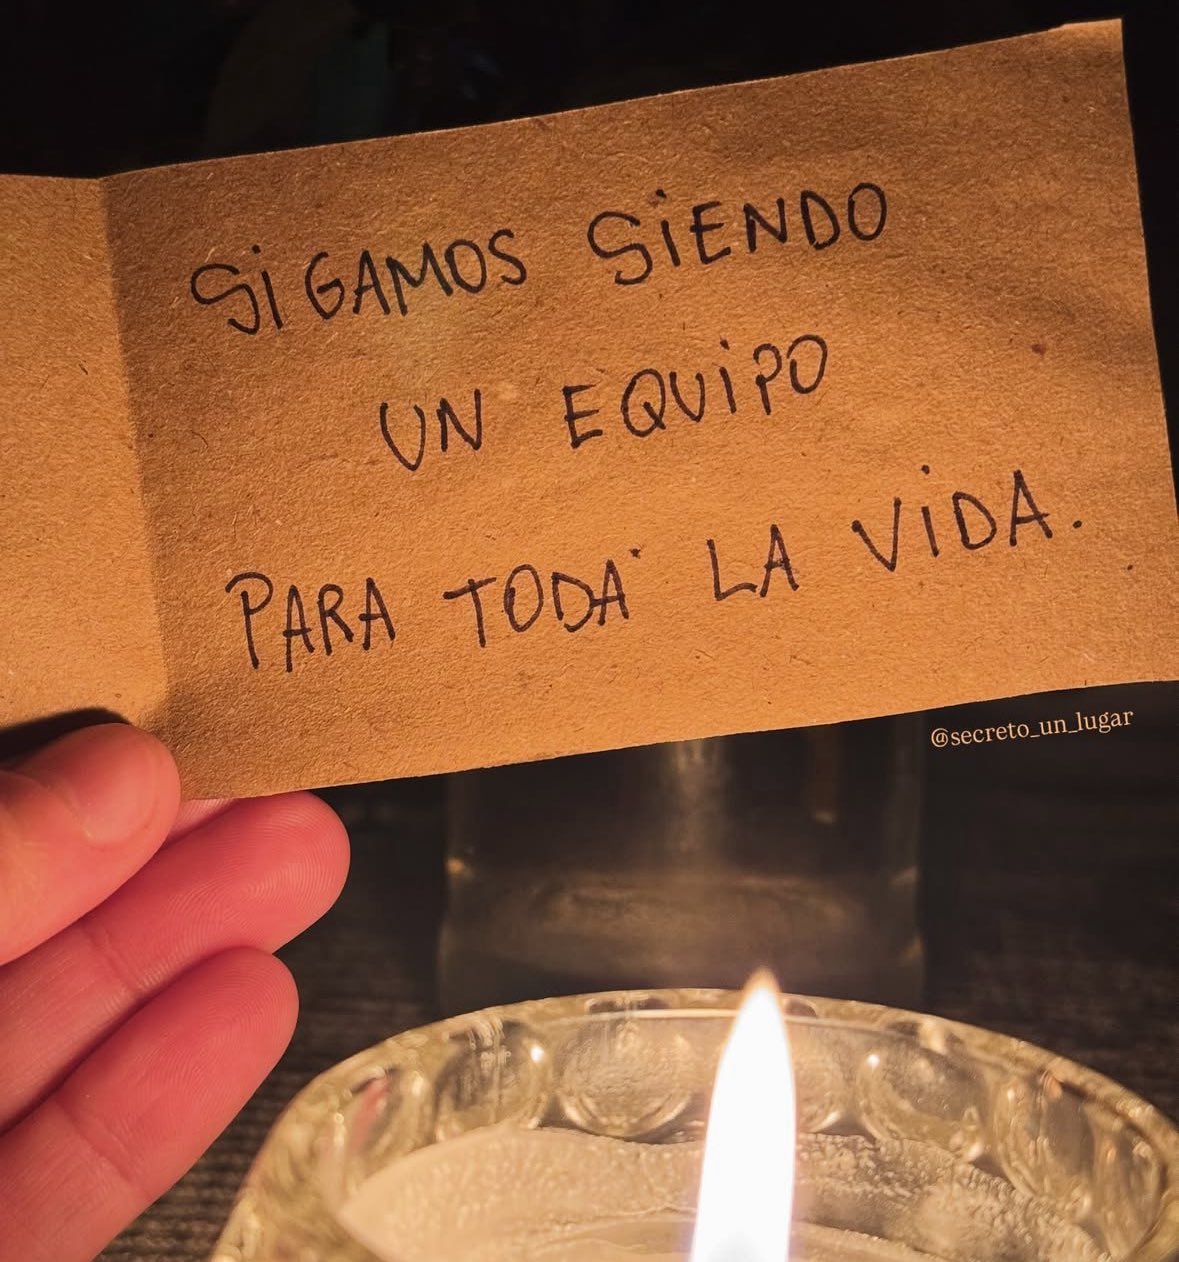 SiGAMOS SiENDO
UN EQUiPO
PARA TODA LA ViDA.
@secreto_un_lugar